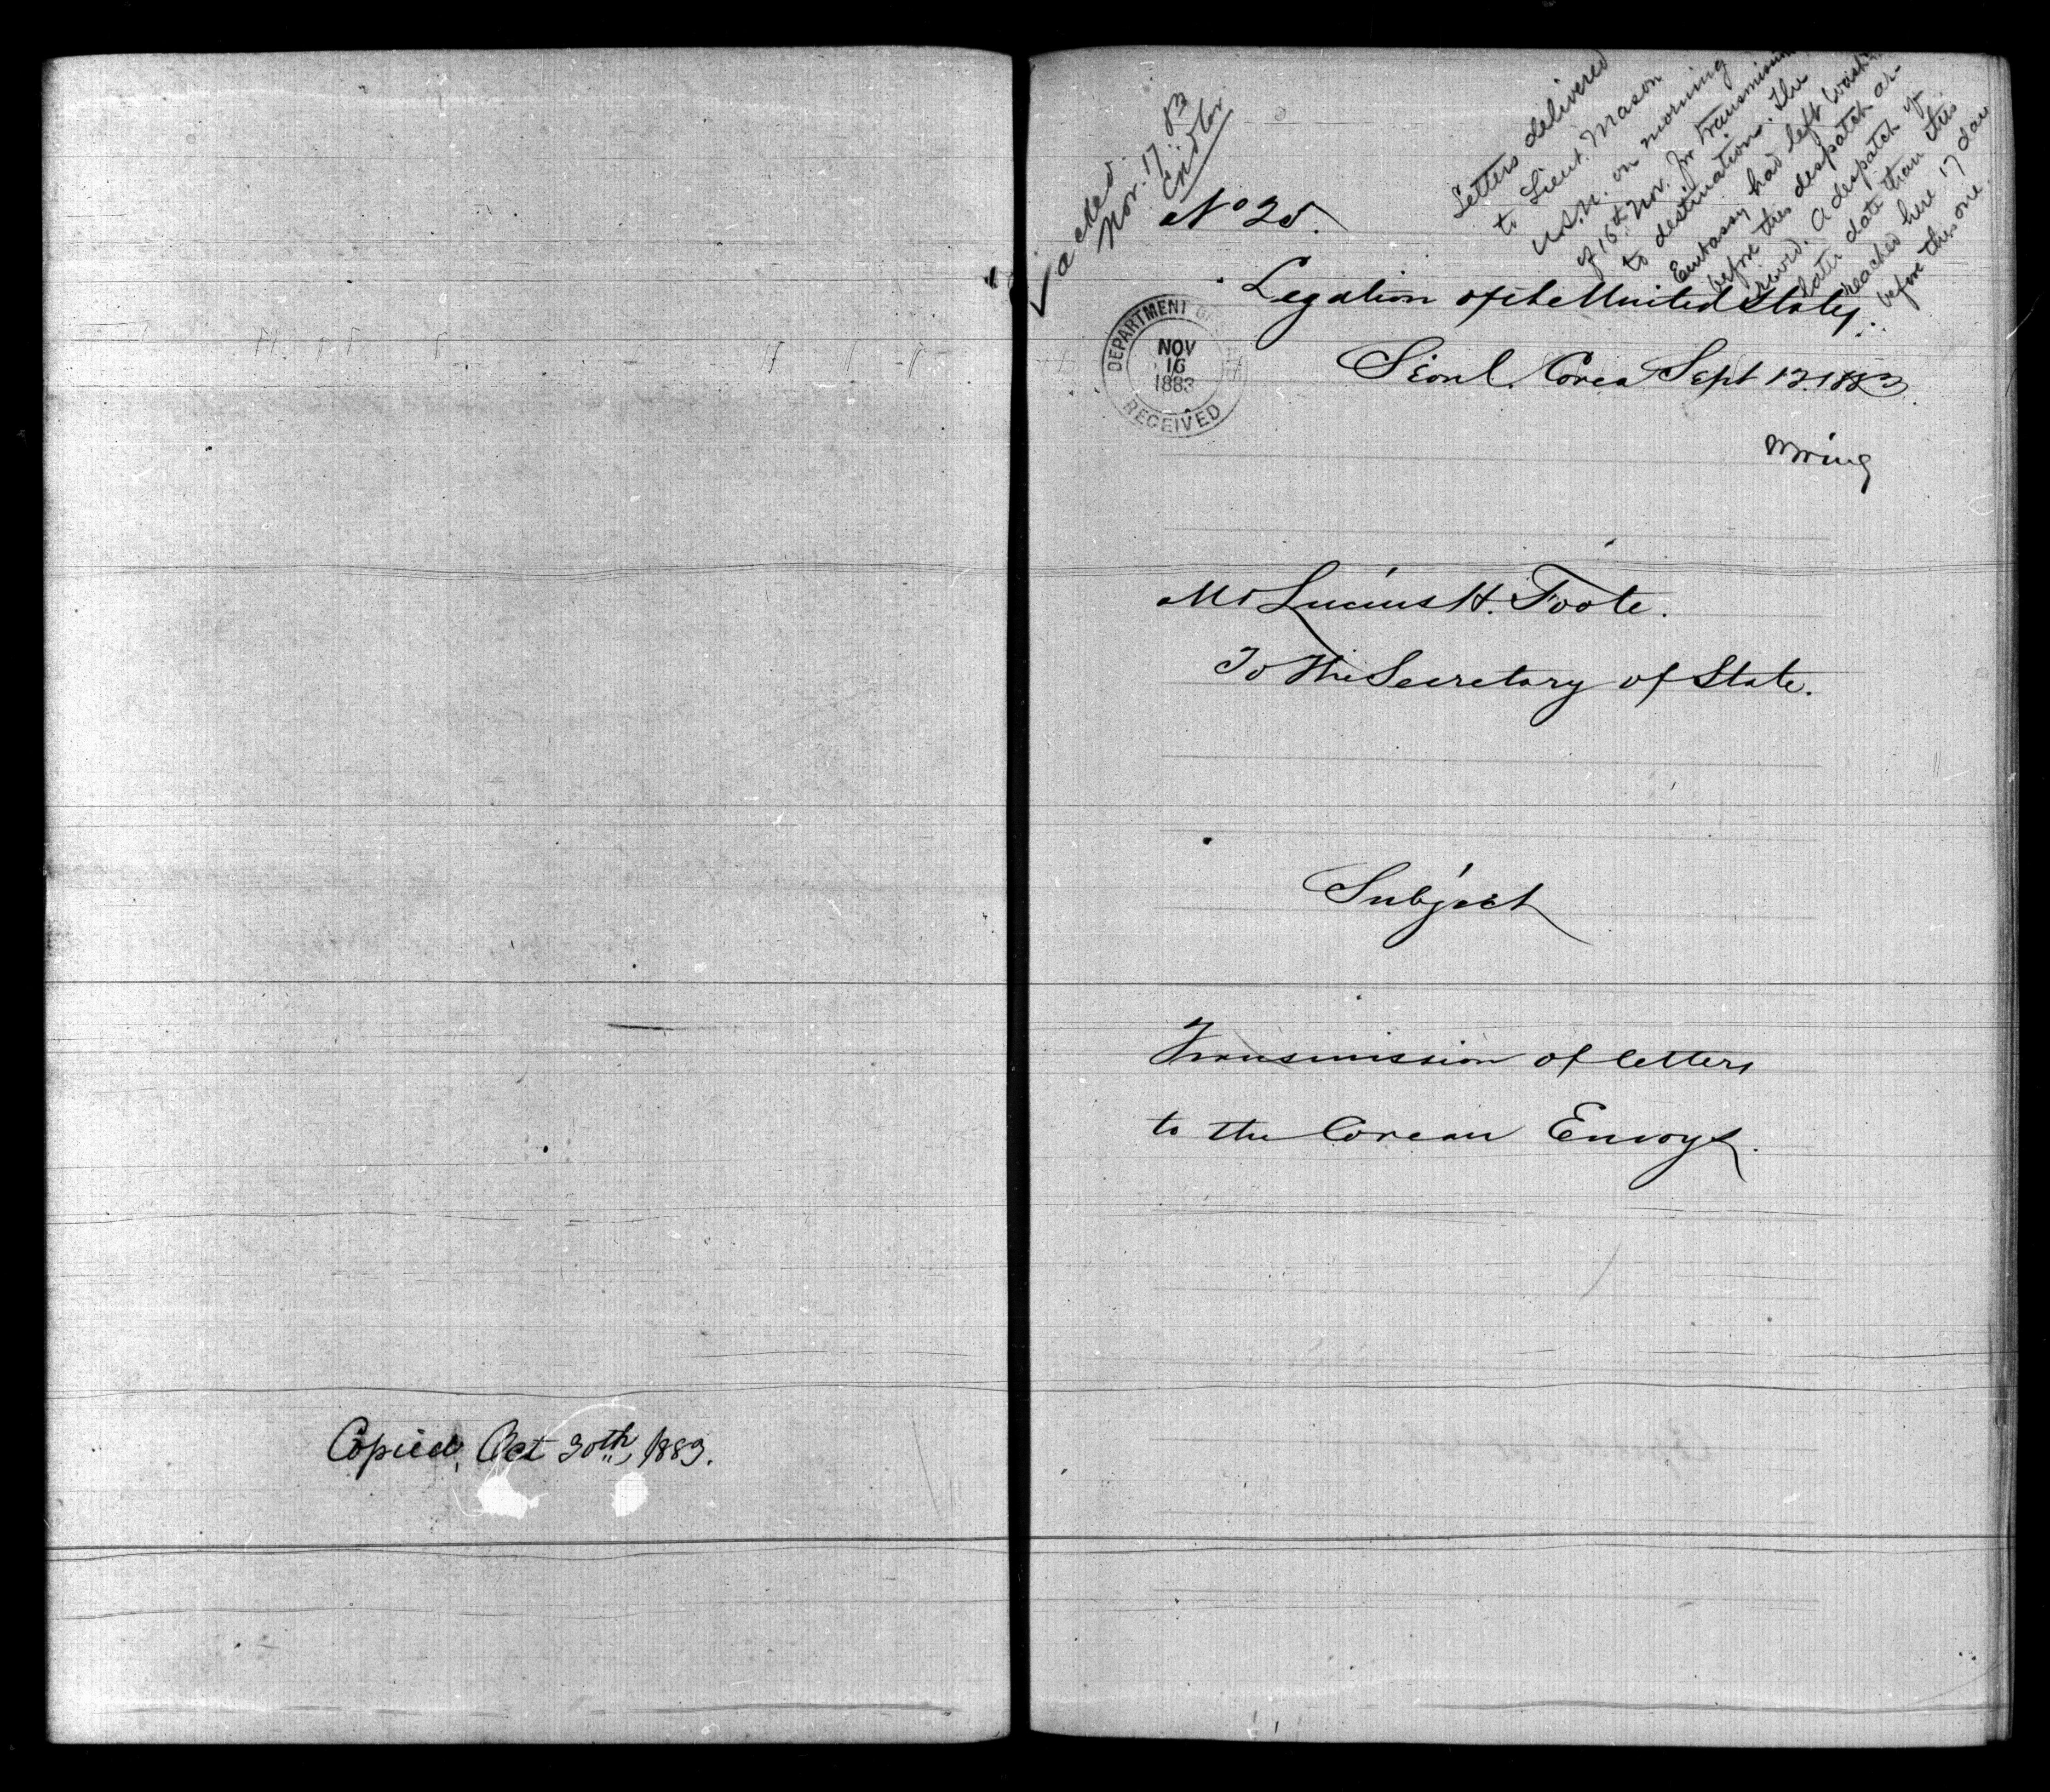 Copied, Oct 30th, 1883.
acked.
Nov. 17 83
Cridler
Letters delivered
to Lieut. Mason
U.S.N. on morning
of 16th Nov. for transmission
to destination. The
Embassy had left
before this despatch ar-
rived. A despatch of
later date than this
reached here 17 days
before this one.
No 25.
Legation of the United States
Séoul, Corea Sept 12. 1883.
DEPARTMENT OF
NOV
16
1883
RECEIVED
Mr Lucius H. Foote.
To The Secretary of State.
Subject
Transmission of letters
to the Corean Envoys.